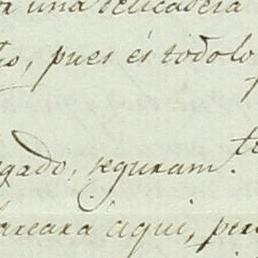 una delicadeza
to, pues es todo lo
gado, seguram.te
aqui, per